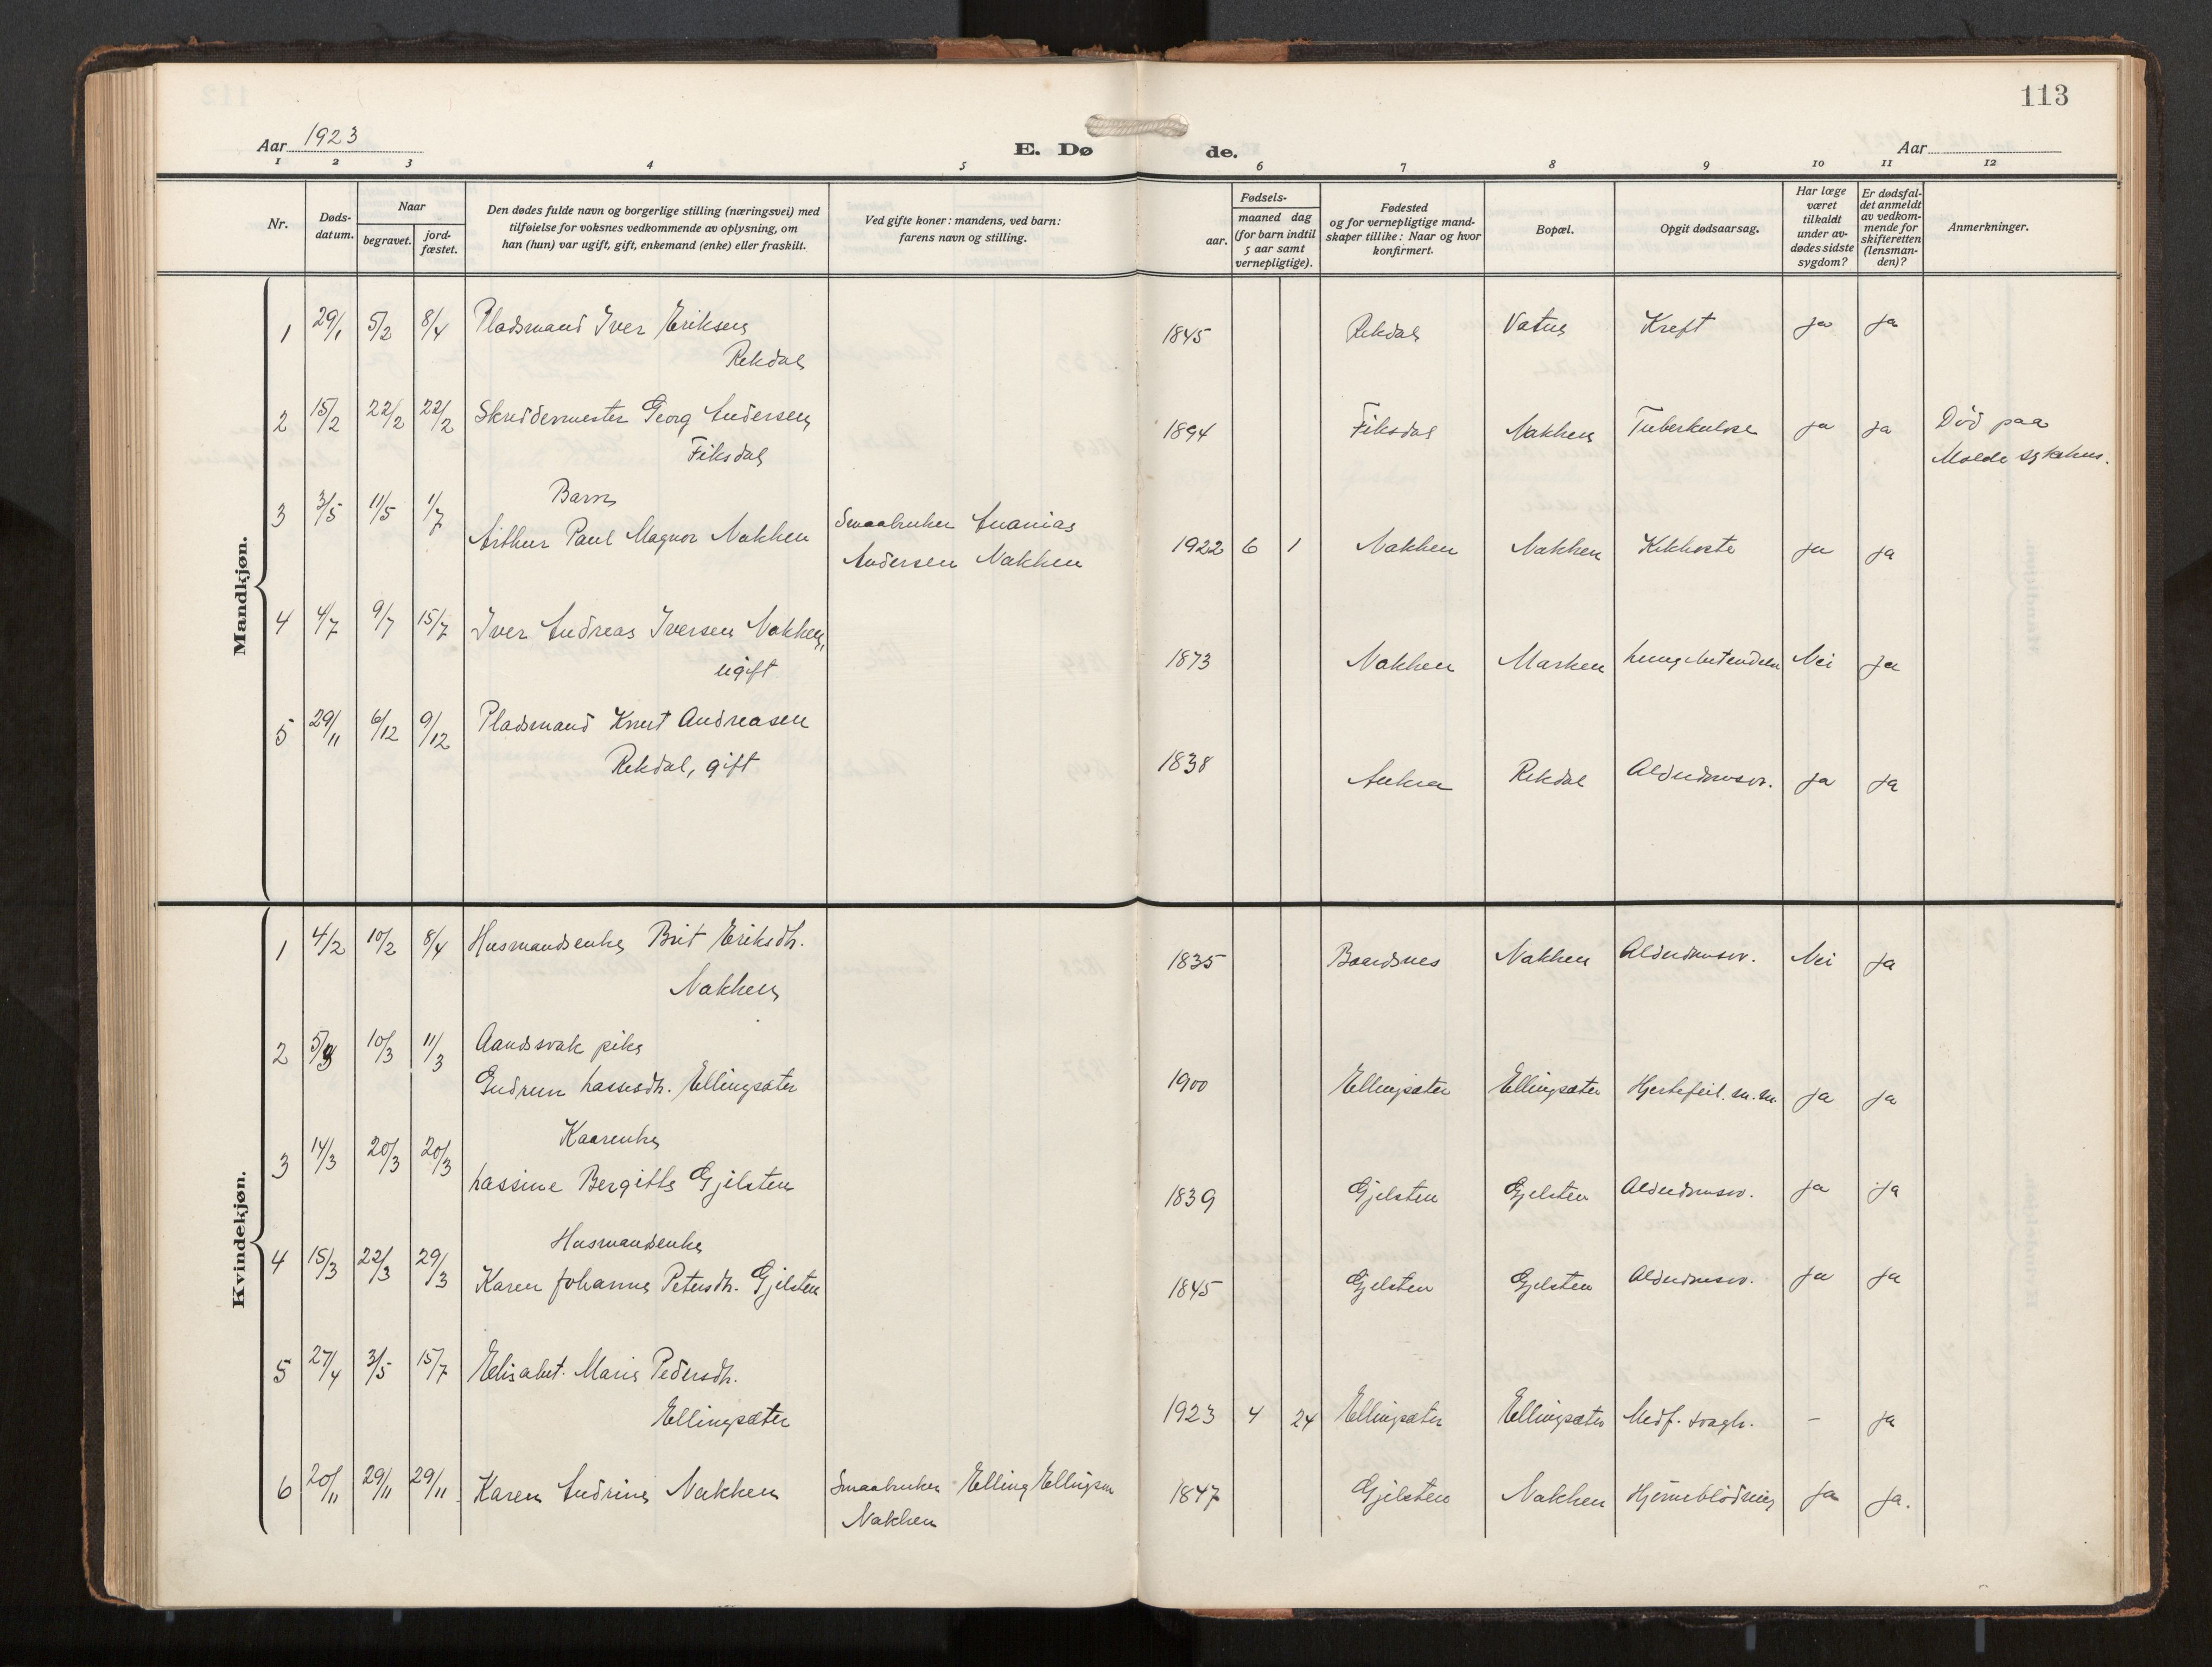 113
Aar 1923
E. Døde.
Aar
1 2 3 4 5 6 7 8 9 10 11 12
Nr.
Døds-
datum.
Naar
begravet.
jord-
fæstet.
Den dødes fulde navn og borgerlige stilling (næringsvei) med
tilføielse for voksnes vedkommende av oplysning, om
han (hun) var ugift, gift, enkemand (enke) eller fraskilt.
Ved gifte koner: mandens, ved barn:
farens navn og stilling.
Fødsels-
aar.
maaned dag
(for barn indtil
5 aar samt
vernepligtige).
Fødested
og for vernepligtige mand-
skaper tillike: Naar og hvor
konfirmert.
Bopæl.
Opgit dødsaarsag.
Har læge
været
tilkaldt
under av-
dødes sidste
sygdom?
Er dødsfal-
det anmeldt
av vedkom-
mende for
skifteretten
(lensman-
den)?
Anmerkninger.
Mandkjøn.
1 29/1 5/2 8/4 Pladsmand Iver Eriksen 1845 Rekdal Vatne Kreft ja ja
Rekdal
2 15/2 22/2 22/2 Skreddermester Georg Andersen 1894 Fiksdal Nakken Tuberkulose ja ja Død paa
Fiksdal Molde sykehus.
Barn
3 3/5 11/5 1/7 Arthur Paul Magnor Nakken Smaabruker Ananias
Andersen Nakken 1922 6 1 Nakken Nakken Kikhoste ja ja
4 4/7 9/7 15/7 Iver Andreas Iversen Nakken,
ugift 1873 Nakken Marken Lungebetendelse Nei ja
5 29/11 6/12 9/12 Pladsmand Knut Andreasen
Rekdal, gift 1838 Aukra Rekdal Alderdomssv. ja ja
Kvindekjøn.
1 4/2 10/2 8/4 Husmandsenke Brit Eriksdh. 1835 Baardsnes Nakken Alderdomssv. Nei ja
Nakken
2 5/3 10/3 11/3 Aandssvak pike
Gudrun Lassesdh. Ellingsæter 1900 Ellingsæter Ellingsæter Hjertefeil m.m. ja ja
Kaarenke
3 14/3 20/3 20/3 Lassine Bergitte Gjelsten 1839 Gjelsten Gjelsten Alderdomssv. ja ja
Husmandsenke
4 15/3 22/3 29/3 Karen Johanne Petersdh. Gjelsten 1845 Gjelsten Gjelsten Alderdomssv. ja ja
5 27/4 3/5 15/7 Elisabet Marie Pedersdh.
Ellingsæter 1923 4 24 Ellingsæter Ellingsæter Medf. svagh. - ja
6 20/11 29/11 29/11 Karen Andrine Nakken Smaabruker Elling Ellingsen 1847 Gjelsten Nakken Hjerneblødning ja ja.
Nakken